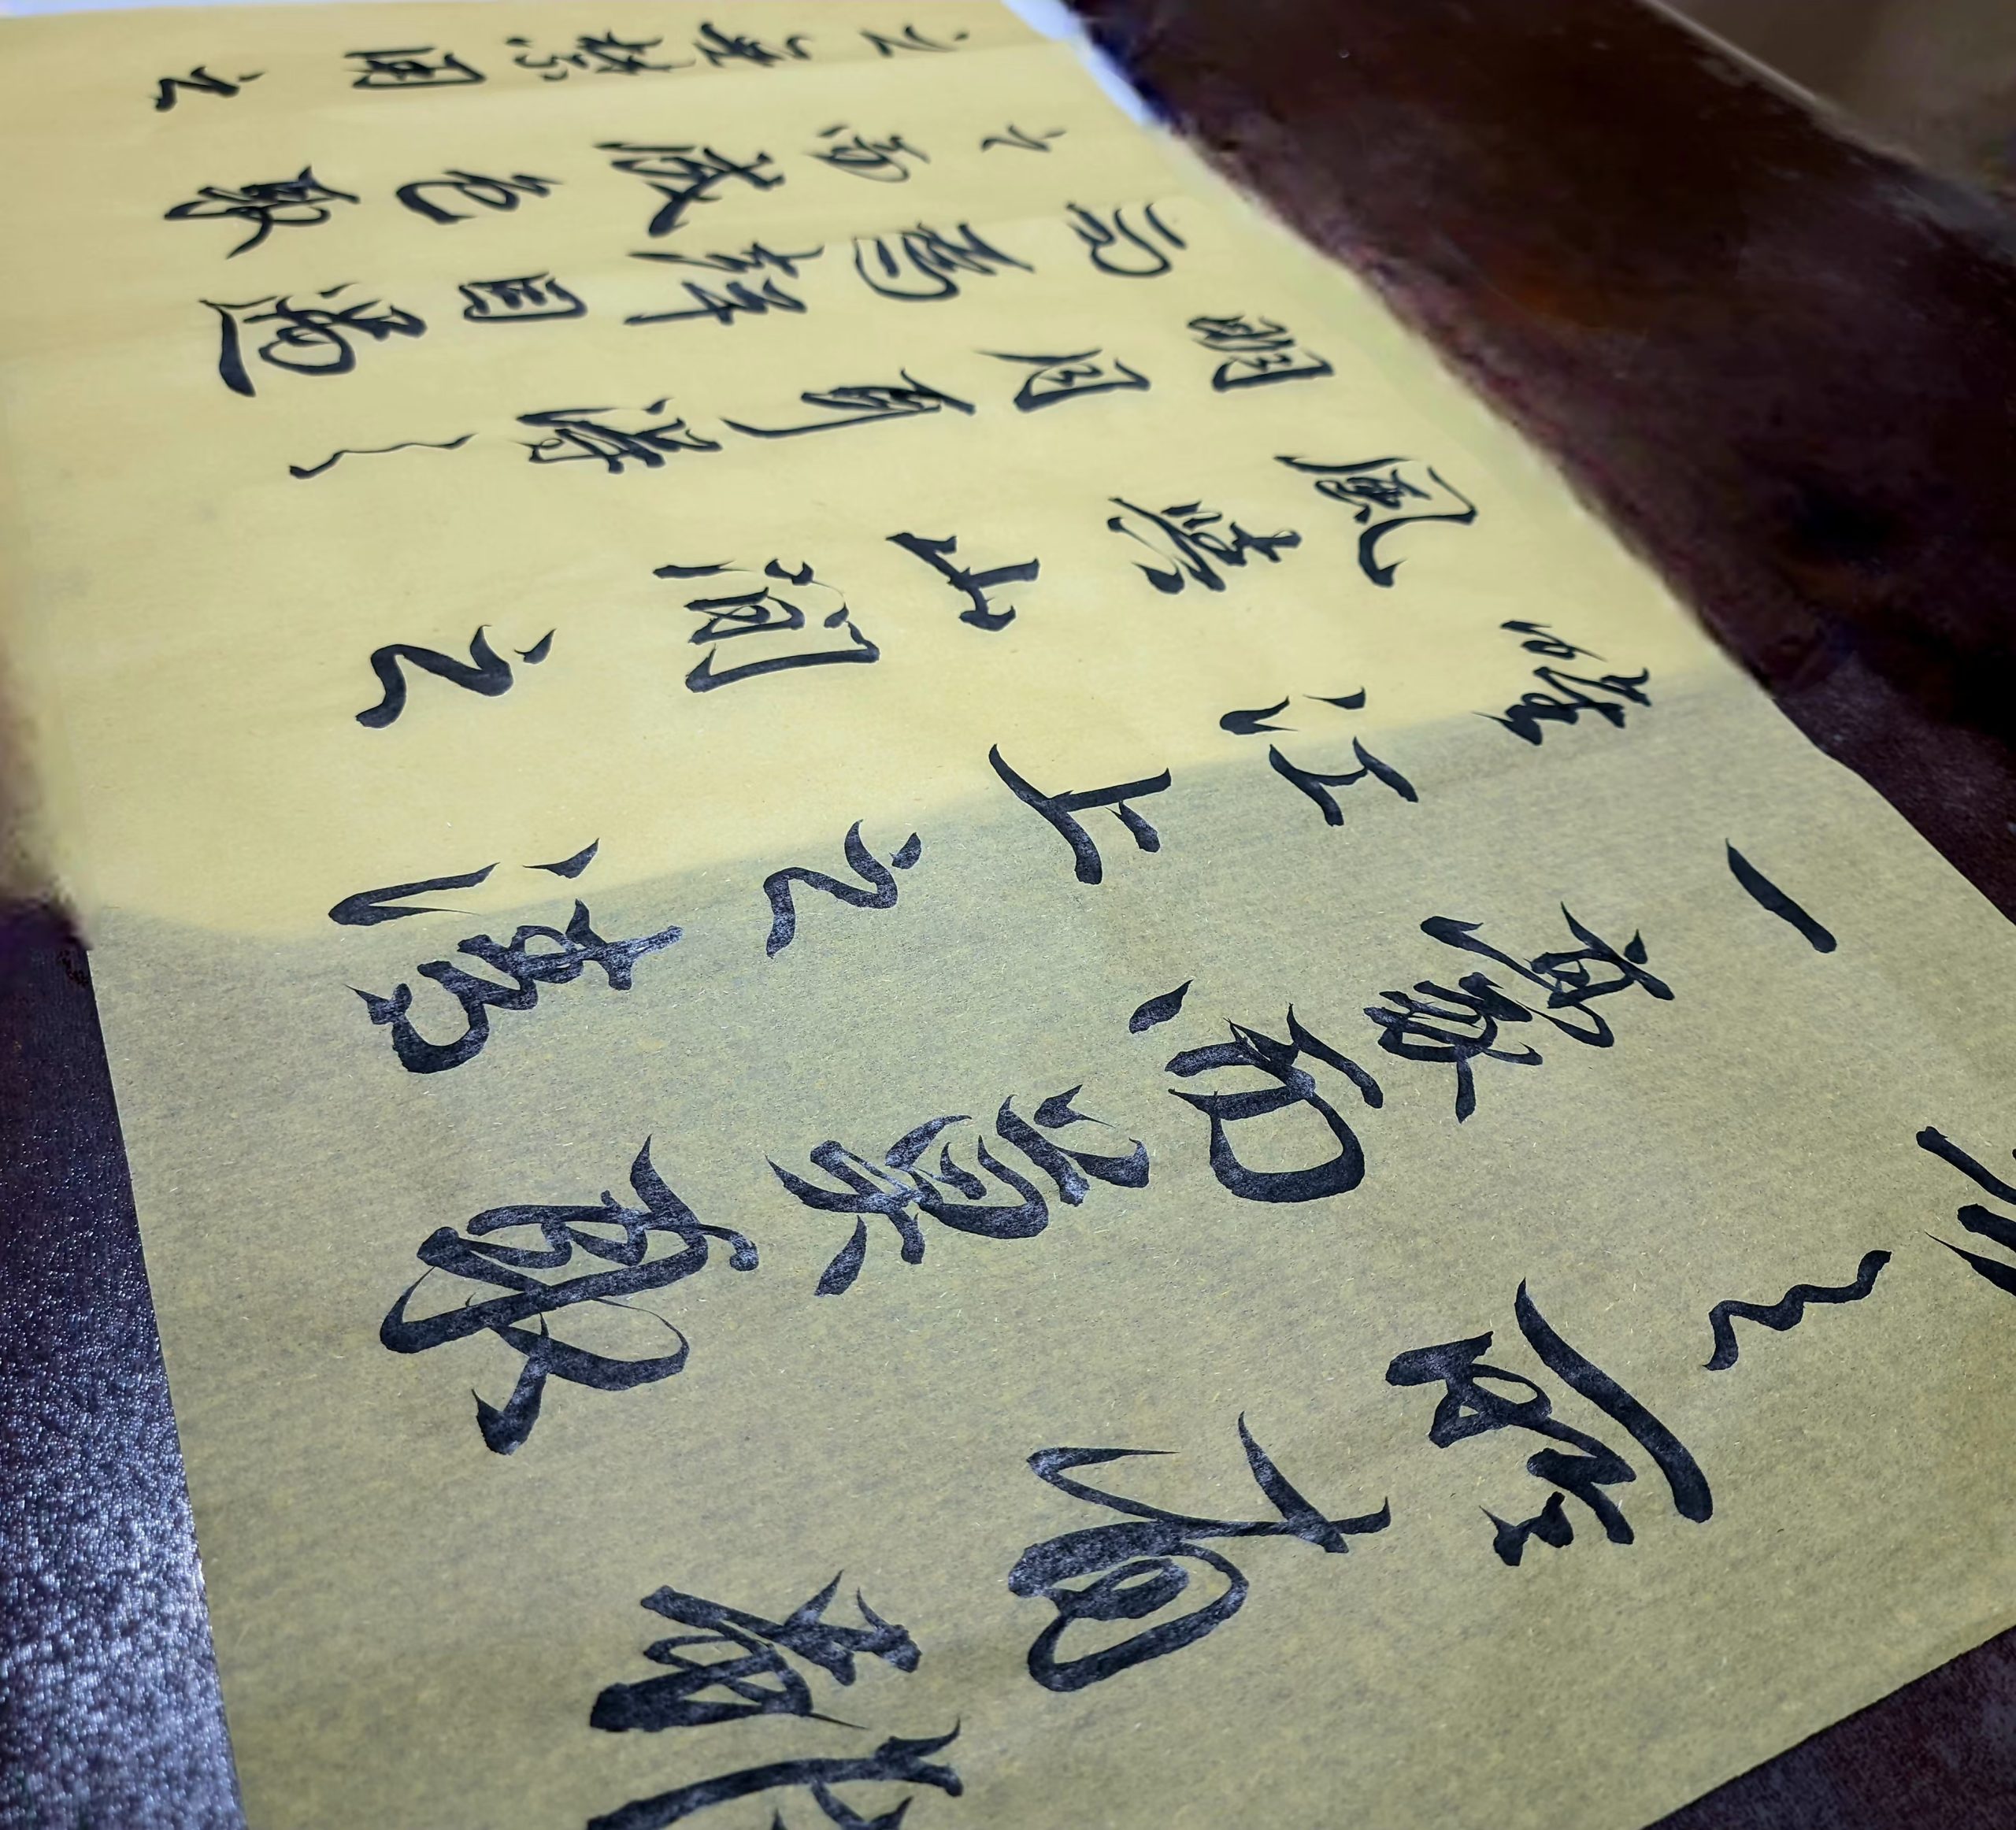 之所有雖
一毫而莫取
唯江上之清
風與山間之
明月耳得之
而為聲目遇
之而成色取
之無禁用之